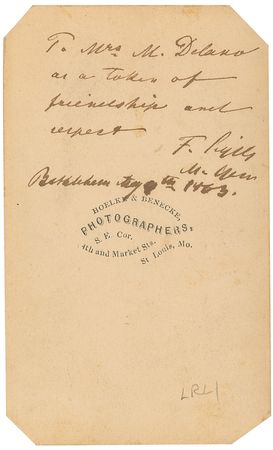 To Mrs M. Delano
as a token of
friendship and
respect
F.
Bethlehem 9th 1863.
HOELKE & BENECKE,
PHOTOGRAPHERS,
S. E. Cor.
4th and Market Sts.
St Louis, Mo.
LRL